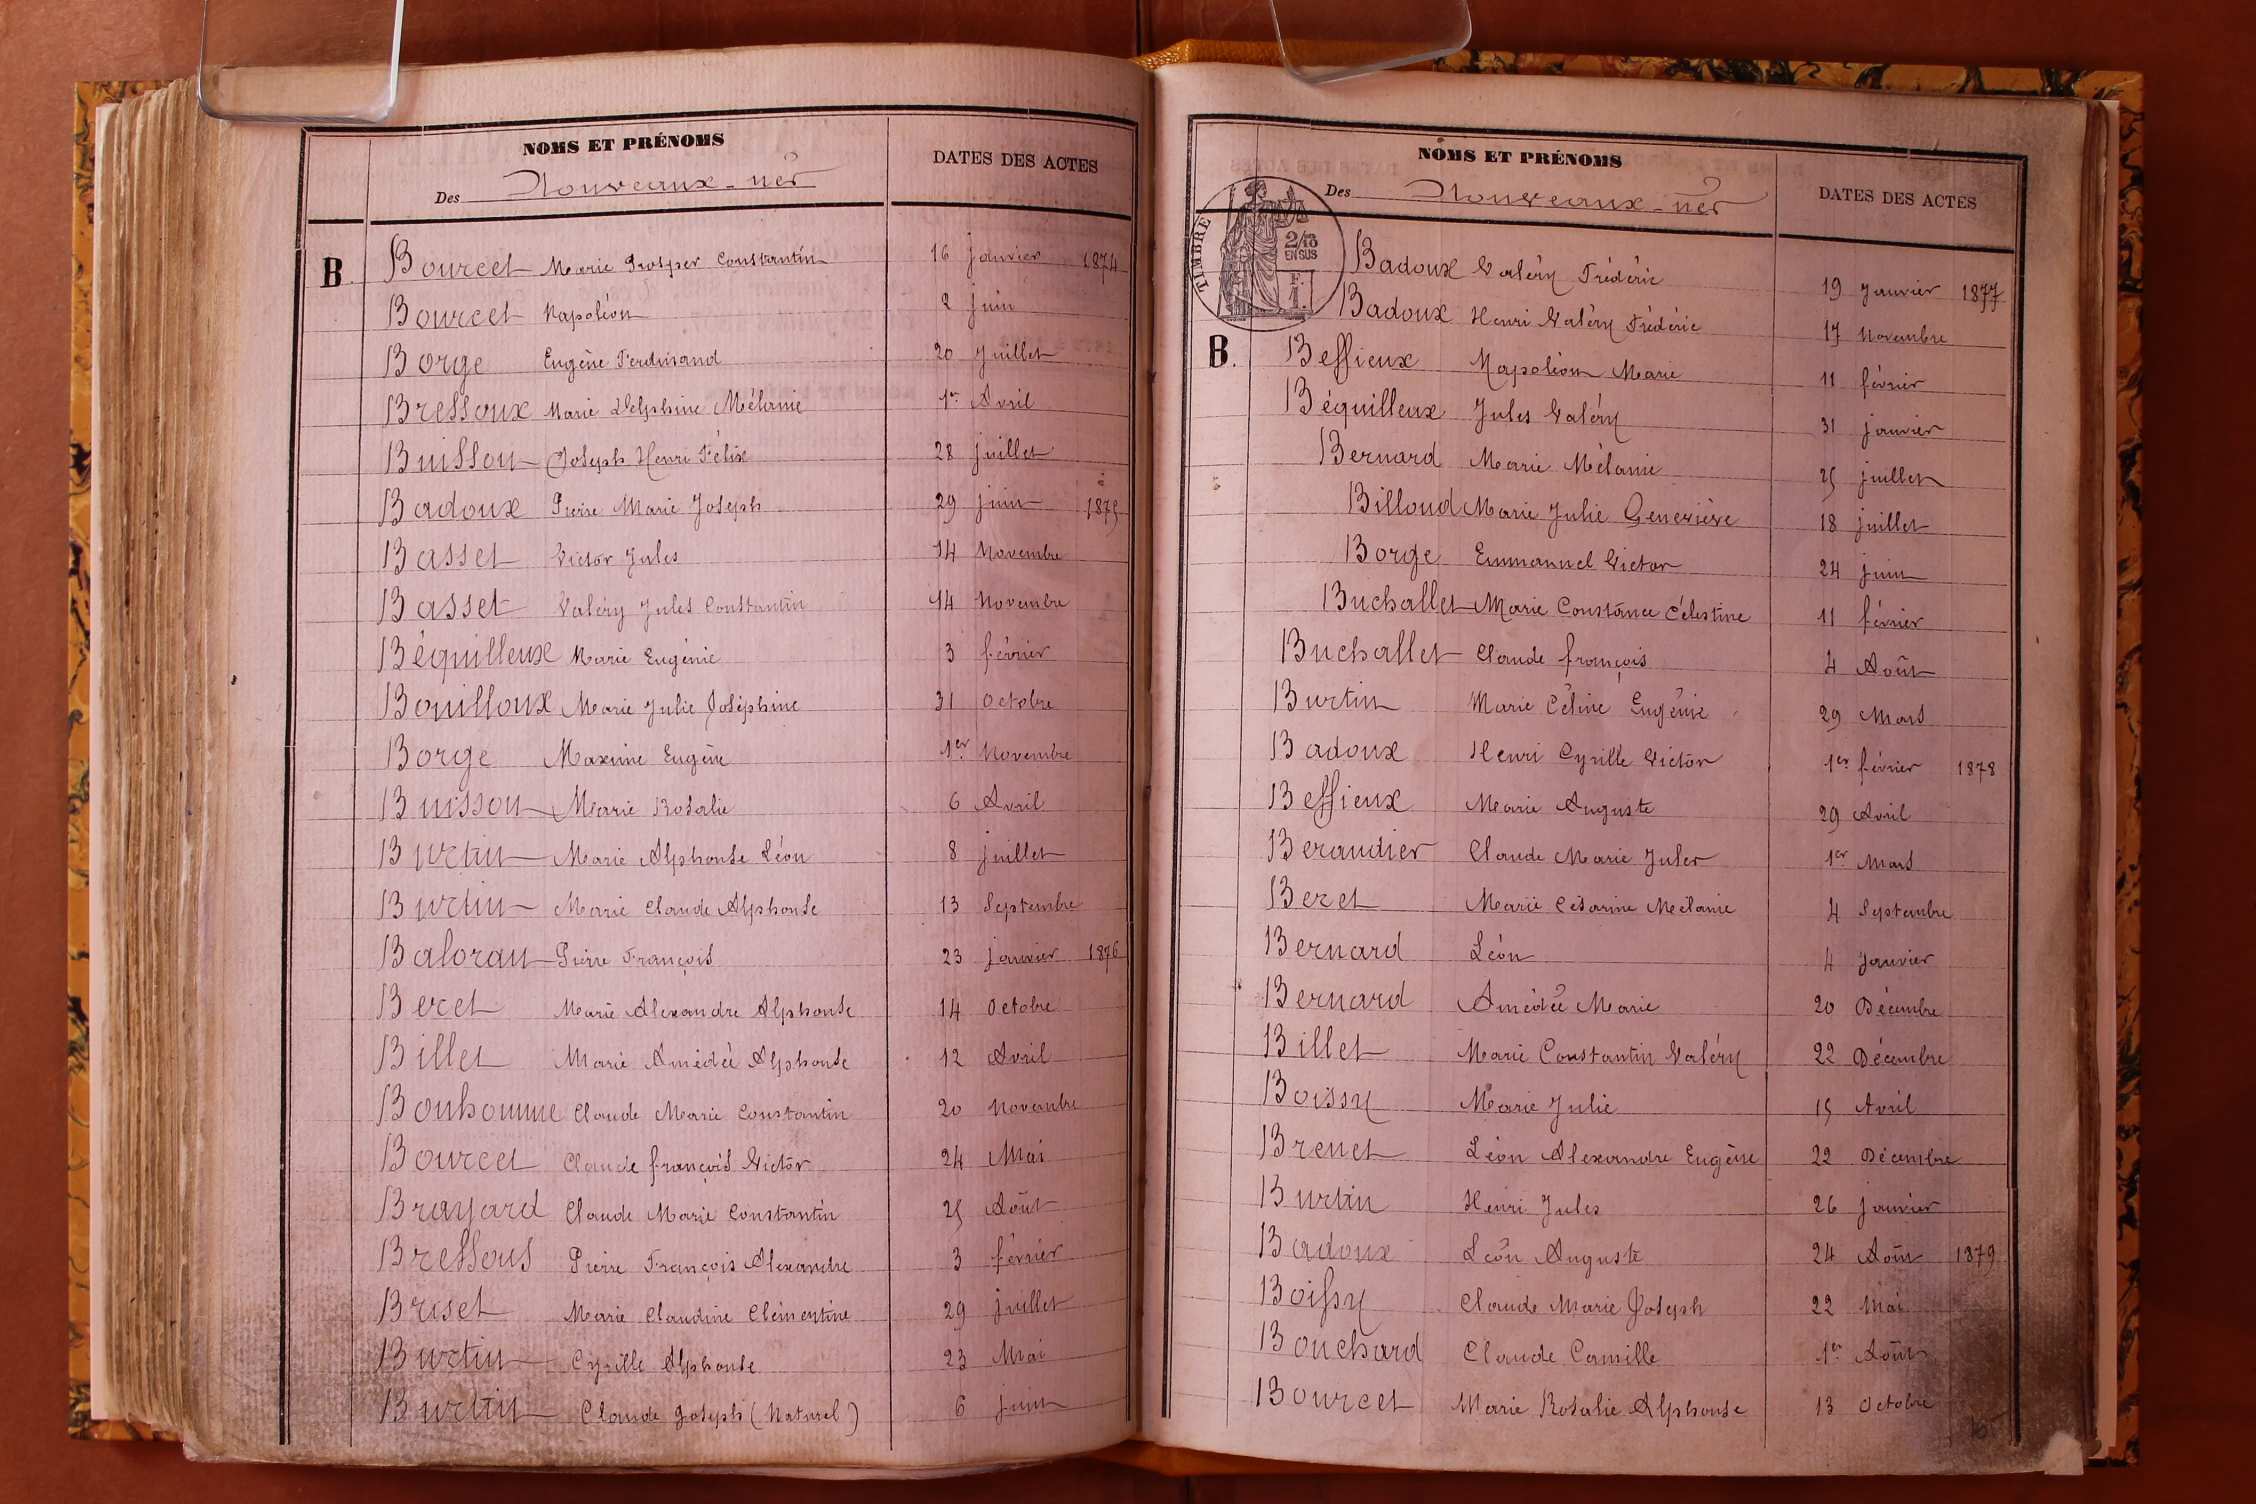 NOMS ET PRÉNOMS
DATES DES ACTES
Des Nouveaux-nés
B. Bourcet Marie Prosper Constantin 16 janvier 1874
Bourcet Napoléon 2 juin
Borge Eugène Ferdinand 20 Juillet
Bressoux Marie Delphine Mélanie 1er Avril
Buisson Joseph Henri Félix 28 juillet
Badoux Pierre Marie Joseph 29 juin 1875
Basset Victor Jules 14 Novembre
Basset Valéry Jules Constantin 14 Novembre
Béquilleux Marie Eugénie 3 février
Bouilloux Marie Julie Joséphine 31 Octobre
Borge Maxime Eugène 1er Novembre
Buisson Marie Rosalie 6 Avril
Burtin Marie Alphonse Léon 8 juillet
Burtin Marie Claude Alphonse 13 Septembre
Baloran Pierre François 23 janvier 1876
Beret Marie Alexandre Alphonse 14 Octobre
Billet Marie Amédée Alphonse 12 Avril
Bonhomme Claude Marie Constantin 20 Novembre
Bourcet Claude françois Victor 24 Mai
Brayard Claude Marie Constantin 25 Août
Bressous Pierre François Alexandre 3 février
Briset Marie Claudine Clémentine 29 juillet
Burtin Cyrille Alphonse 23 Mai
Burtin Claude Joseph (Naturel) 6 juin
NOMS ET PRÉNOMS
DATES DES ACTES
Des Nouveaux-nés
TIMBRE
2/10
EN SUS
F.
1.
Badoux Valéry Frédéric 19 Janvier 1877
Badoux Henri Valéry Frédéric 17 Novembre
B. Beffieux Napoléon Marie 11 février
Béquilleux Jules Valéry 31 janvier
Bernard Marie Mélanie 25 juillet
Billoud Marie Julie Geneviève 18 juillet
Borge Emmanuel Victor 24 juin
Buchallet Marie Constance Célestine 11 février
Buchallet Claude françois 4 Août
Burtin Marie Céline Eugénie 29 Mars
Badoux Henri Cyrille Victor 1er février 1878
Beffieux Marie Auguste 29 Avril
Beraudier Claude Marie Jules 1er Mars
Beret Marie Césarine Mélanie 4 Septembre
Bernard Léon 4 Janvier
Bernard Amédée Marie 20 Décembre
Billet Marie Constantin Valéry 22 Décembre
Boissy Marie Julie 15 Avril
Brenet Léon Alexandre Eugène 22 Décembre
Burtin Henri Jules 26 janvier
Badoux Léon Auguste 24 Août 1879
Boissy Claude Marie Joseph 22 Mai
Bouchard Claude Camille 1er Août
Bourcet Marie Rosalie Alphonse 13 Octobre